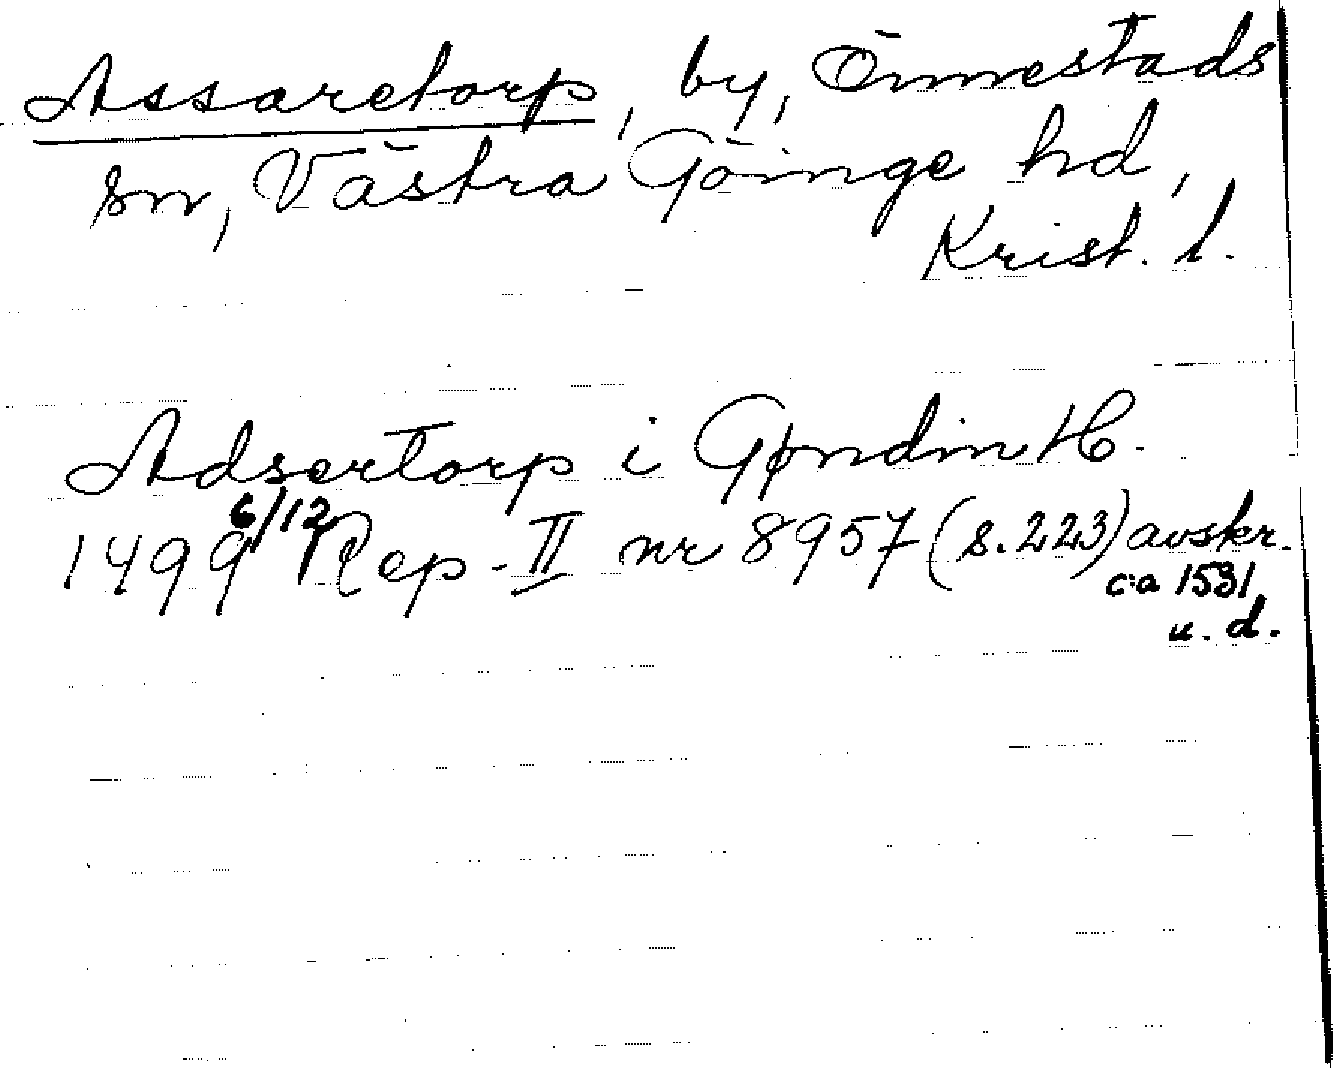 Assaretorp, by, Önnestads
sn, Västra Göinge hd,
Krist. l.
Adsertorp i Gøndin H.
1499 6/12 Rep. II nr 8957 (s. 223) avskr.
c:a 1531
u. d.